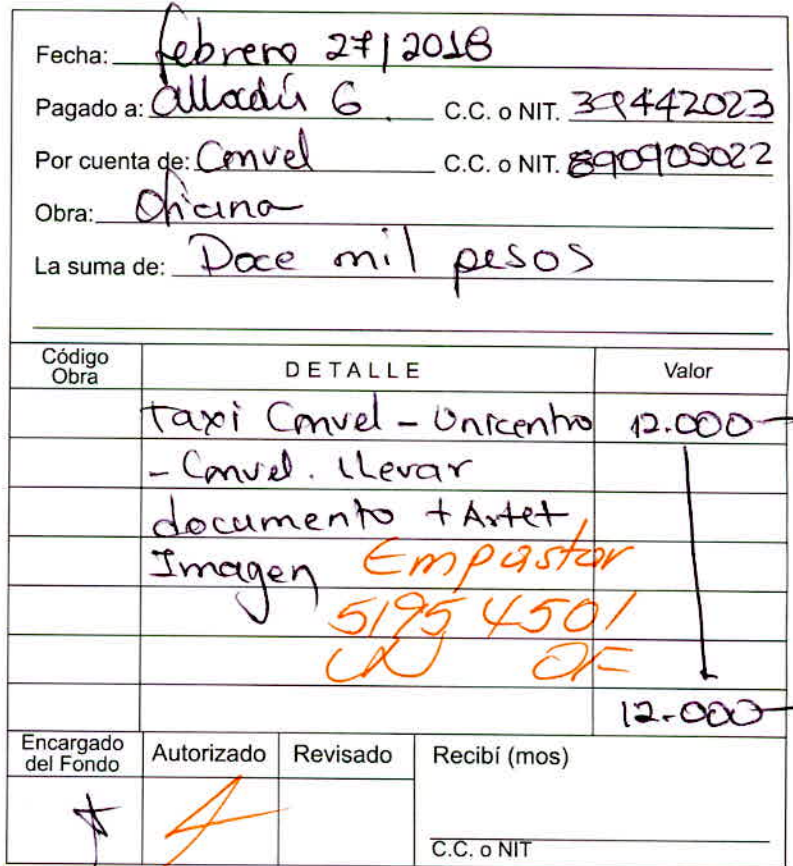 Fecha: febrero 27/2018
Pagado a: G C.C. o NIT. 39442023
Por cuenta de: Convel C.C. o NIT. 890905022
Obra: Oficina
La suma de: Doce mil pesos
Código Obra DETALLE Valor
taxi Convel - Unicentro 12.000
- Convel. llevar
documento + Artet
Imagen Empastar
5195 4501
OF
12.000
Encargado del Fondo Autorizado Revisado Recibí (mos)
C.C. o NIT